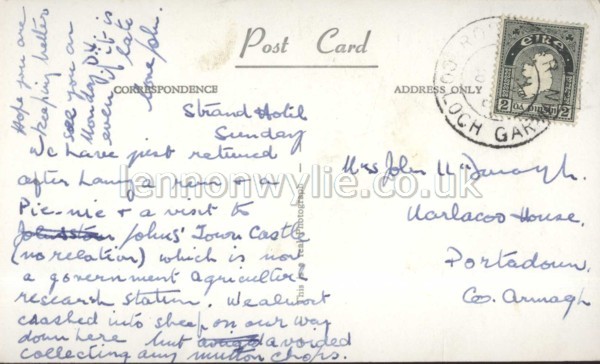 Post Card
CORRESPONDENCE
ADDRESS ONLY
Strand Hotel
Sunday
have just returned
after having a run & a
Pic-nic & a visit to
Johnstown Johns' Town Castle
(no relation) which is now
a government Agriculter
research station. We almost
crashed into sheep on our way
down here but avoided
collecting any mutton chops.
Hope you are
keeping better
see you on
Monday
even if it is
late
love
This is a real Photograph
Mrs John
House.
Portadown.
Co. Armagh
EIRE
2
2
LOCH GAR
lennonwylie.co.uk